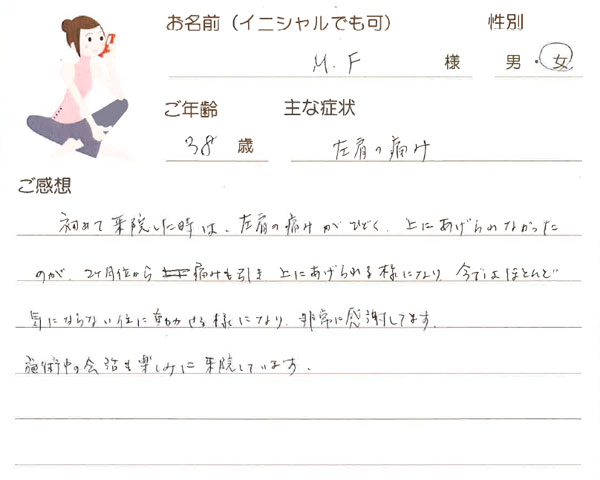 お名前（イニシャルでも可） 性別
M.F 様 男・女
ご年齢 主な症状
38 歳 左肩の痛み
ご感想
初めて来院した時は、左肩の痛みがひどく、上にあげられなかった
のが、2ヶ月位から 痛みも引き 上にあげられる様になり、今ではほとんど
気にならない位に動かせる様になり、非常に感謝してます。
施術中の会話も楽しみに来院しています。